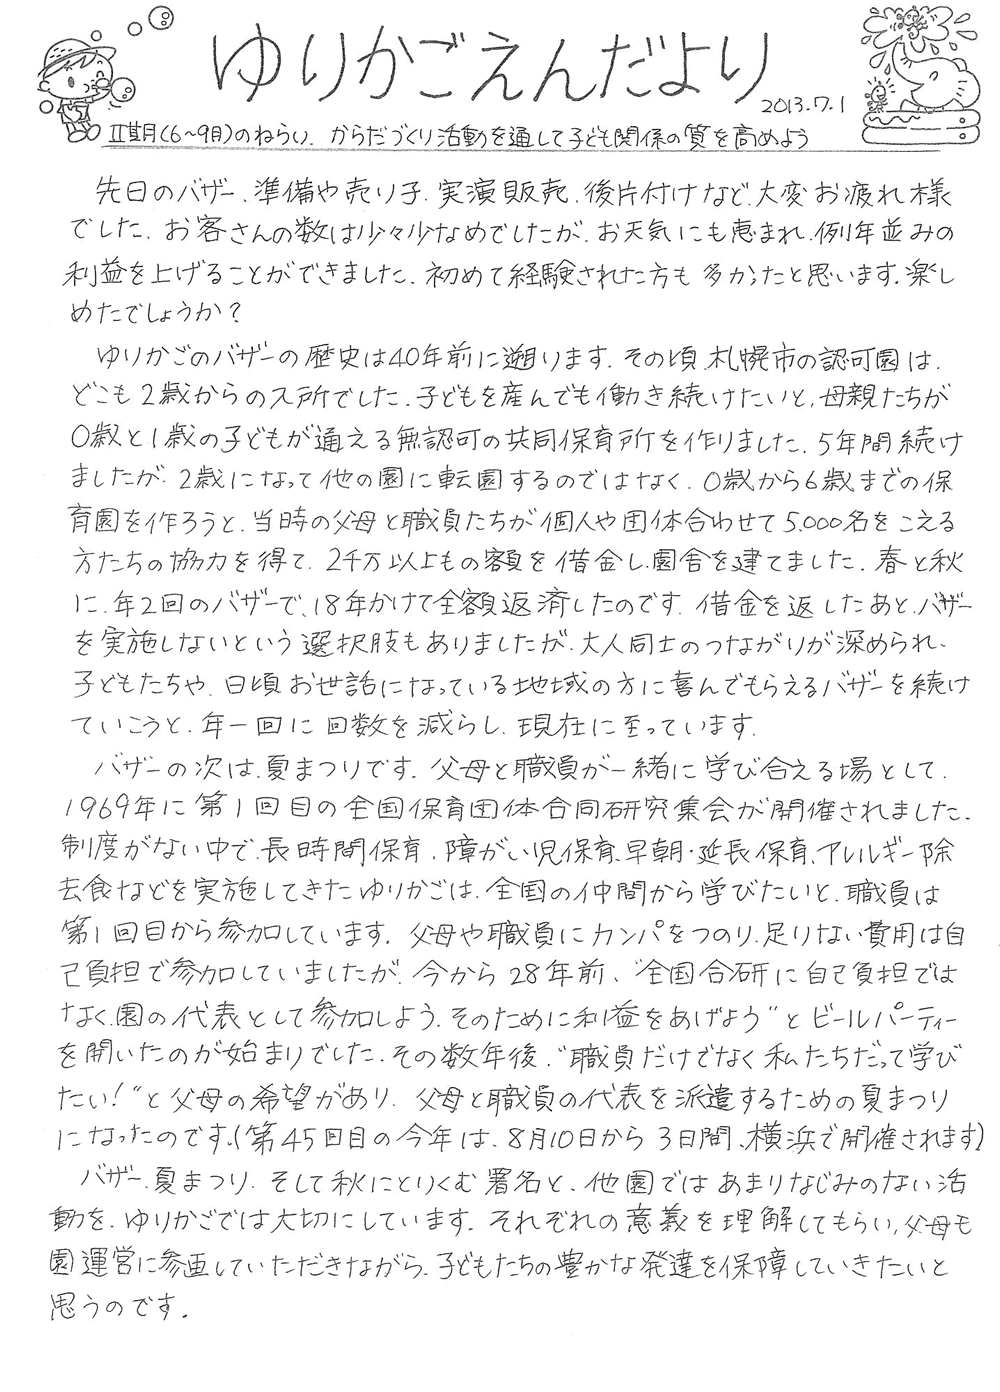 ゆりかごえんだより
2013.7.1
II期(6~9月)のねらい、からだづくり活動を通して子ども関係の質を高めよう
先日のバザー、準備や売り子、実演販売、後片付けなど、大変お疲れ様
でした。お客さんの数は少々少なめでしたが、お天気にも恵まれ、例年並みの
利益を上げることができました。初めて経験された方も多かったと思います。楽し
めたでしょうか?
ゆりかごのバザーの歴史は40年前に遡ります。その頃、札幌市の認可園は、
どこも2歳からの入所でした。子どもを産んでも働き続けたいと、母親たちが
0歳と1歳の子どもが通える無認可の共同保育所を作りました。5年間続け
ましたが、2歳になって他の園に転園するのではなく、0歳から6歳までの保
育園を作ろうと、当時の父母と職員たちが個人や団体合わせて5,000名をこえる
方たちの協力を得て、2千万以上もの額を借金し、園舎を建てました。春と秋
に、年2回のバザーで、18年かけて全額返済したのです。借金を返したあと、バザー
を実施しないという選択肢もありましたが、大人同士のつながりが深められ、
子どもたちや、日頃お世話になっている地域の方に喜んでもらえるバザーを続け
ていこうと、年一回に回数を減らし、現在に至っています。
バザーの次は、夏まつりです。父母と職員が一緒に学び合える場として、
1969年に第1回目の全国保育団体合同研究集会が開催されました。
制度がない中で、長時間保育、障がい児保育、早朝・延長保育、アレルギー除
去食などを実施してきたゆりかごは、全国の仲間から学びたいと、職員は
第1回目から参加しています。父母や職員にカンパをつのり、足りない費用は自
己負担で参加していましたが、今から28年前、“全国合研に自己負担では
なく、園の代表として参加しよう、そのために利益をあげよう”とビールパーティー
を開いたのが始まりでした。その数年後、“職員だけでなく私たちだって学び
たい!”と父母の希望があり、父母と職員の代表を派遣するための夏まつり
になったのです。(第45回目の今年は、8月10日から3日間、横浜で開催されます)
バザー、夏まつり、そして秋にとりくむ署名と、他園ではあまりなじみのない活
動を、ゆりかごでは大切にしています。それぞれの意義を理解してもらい、父母も
園運営に参画していただきながら、子どもたちの豊かな発達を保障していきたいと
思うのです。